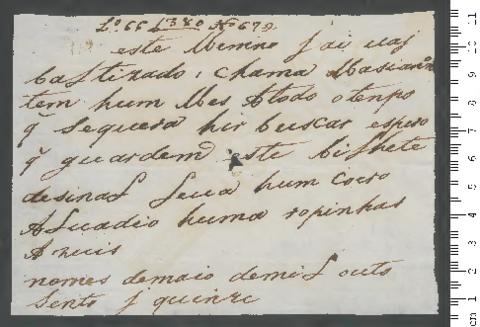 Lº 66 f 380 Nº 679
este Menino j ai uaj
baftizado, chama Masiano
tem hum Mes Atodo otenpo
q̃ sequera hir buscar espero
q̃ guardem este bilhete
desinaL Leua hum coero
ALuadio huma ropinhas
Azuis
nomes demaio demiL outo
sento j quinze
11
10
9
8
7
6
5
4
3
2
1
cm